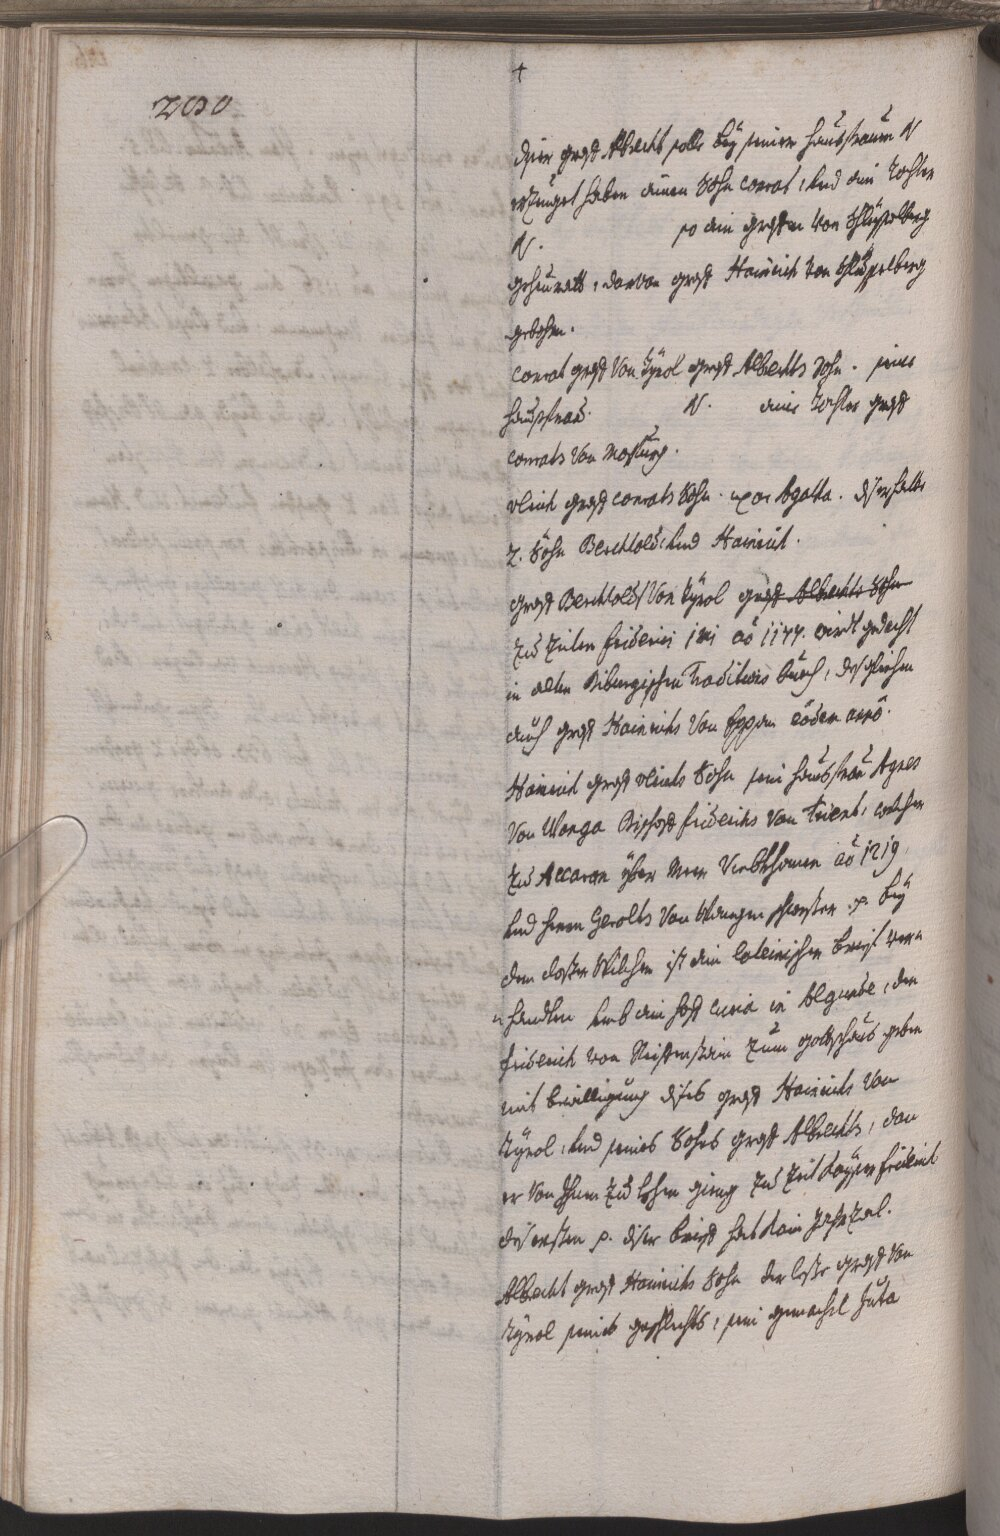 200
+
diser graf Albrecht solle bey seiner haußfrauen N
erzeuget haben ainen Sohn Conrat, und ain Tochter
N. so ain grafen von Schlüsselberg
geheuratt, darvon graf Hainrich von Schlüsselberg
gebohrn.
Conrat graf von Tyrol graf Albrechts Sohn. seine
haußfrau N. aine Tochter graf
Conrats von Mosburg.
Ulrich graf Conrats Sohn. uxor Agatta. diser hatte
2. Söhn Berchtold, und Hainrich.
graf Berchtold von Tyrol graf Albrechts Sohn
zu zeiten friderici imi ao 1177. wirdt gedacht
in alten Bibergischen Traditions buech, desgleichen
auch graf Hainrichs von Eppan eodem anno.
Hainrich graf Ulrichs Sohn sein haußfrau Agnes
von Wanga Bischoff friderichs von Trient, welcher
zu Accaron yber Meer Verblichen ao 1219
und herrn Gerolts von Wangen schwester p. bey
dem closter Wilthen ist ain lateinischer brieff ver-
handlen umb ain hoff curia in Algunde, den
friderich von Reiffenstain zum gottshaus geben
mit bewilligung dises graf Hainrichs von
Tyrol, und seines Sohns graf Albrechts, dan
er von Ihnen zu Lehen gieng zu zeit Kayser friderich
des ersten p. diser brieff hat kain Jahrzal.
Albrecht graf Hainrichs Sohn der leste graf von
Tyrol seines geschlechts, sein gemachel Juta